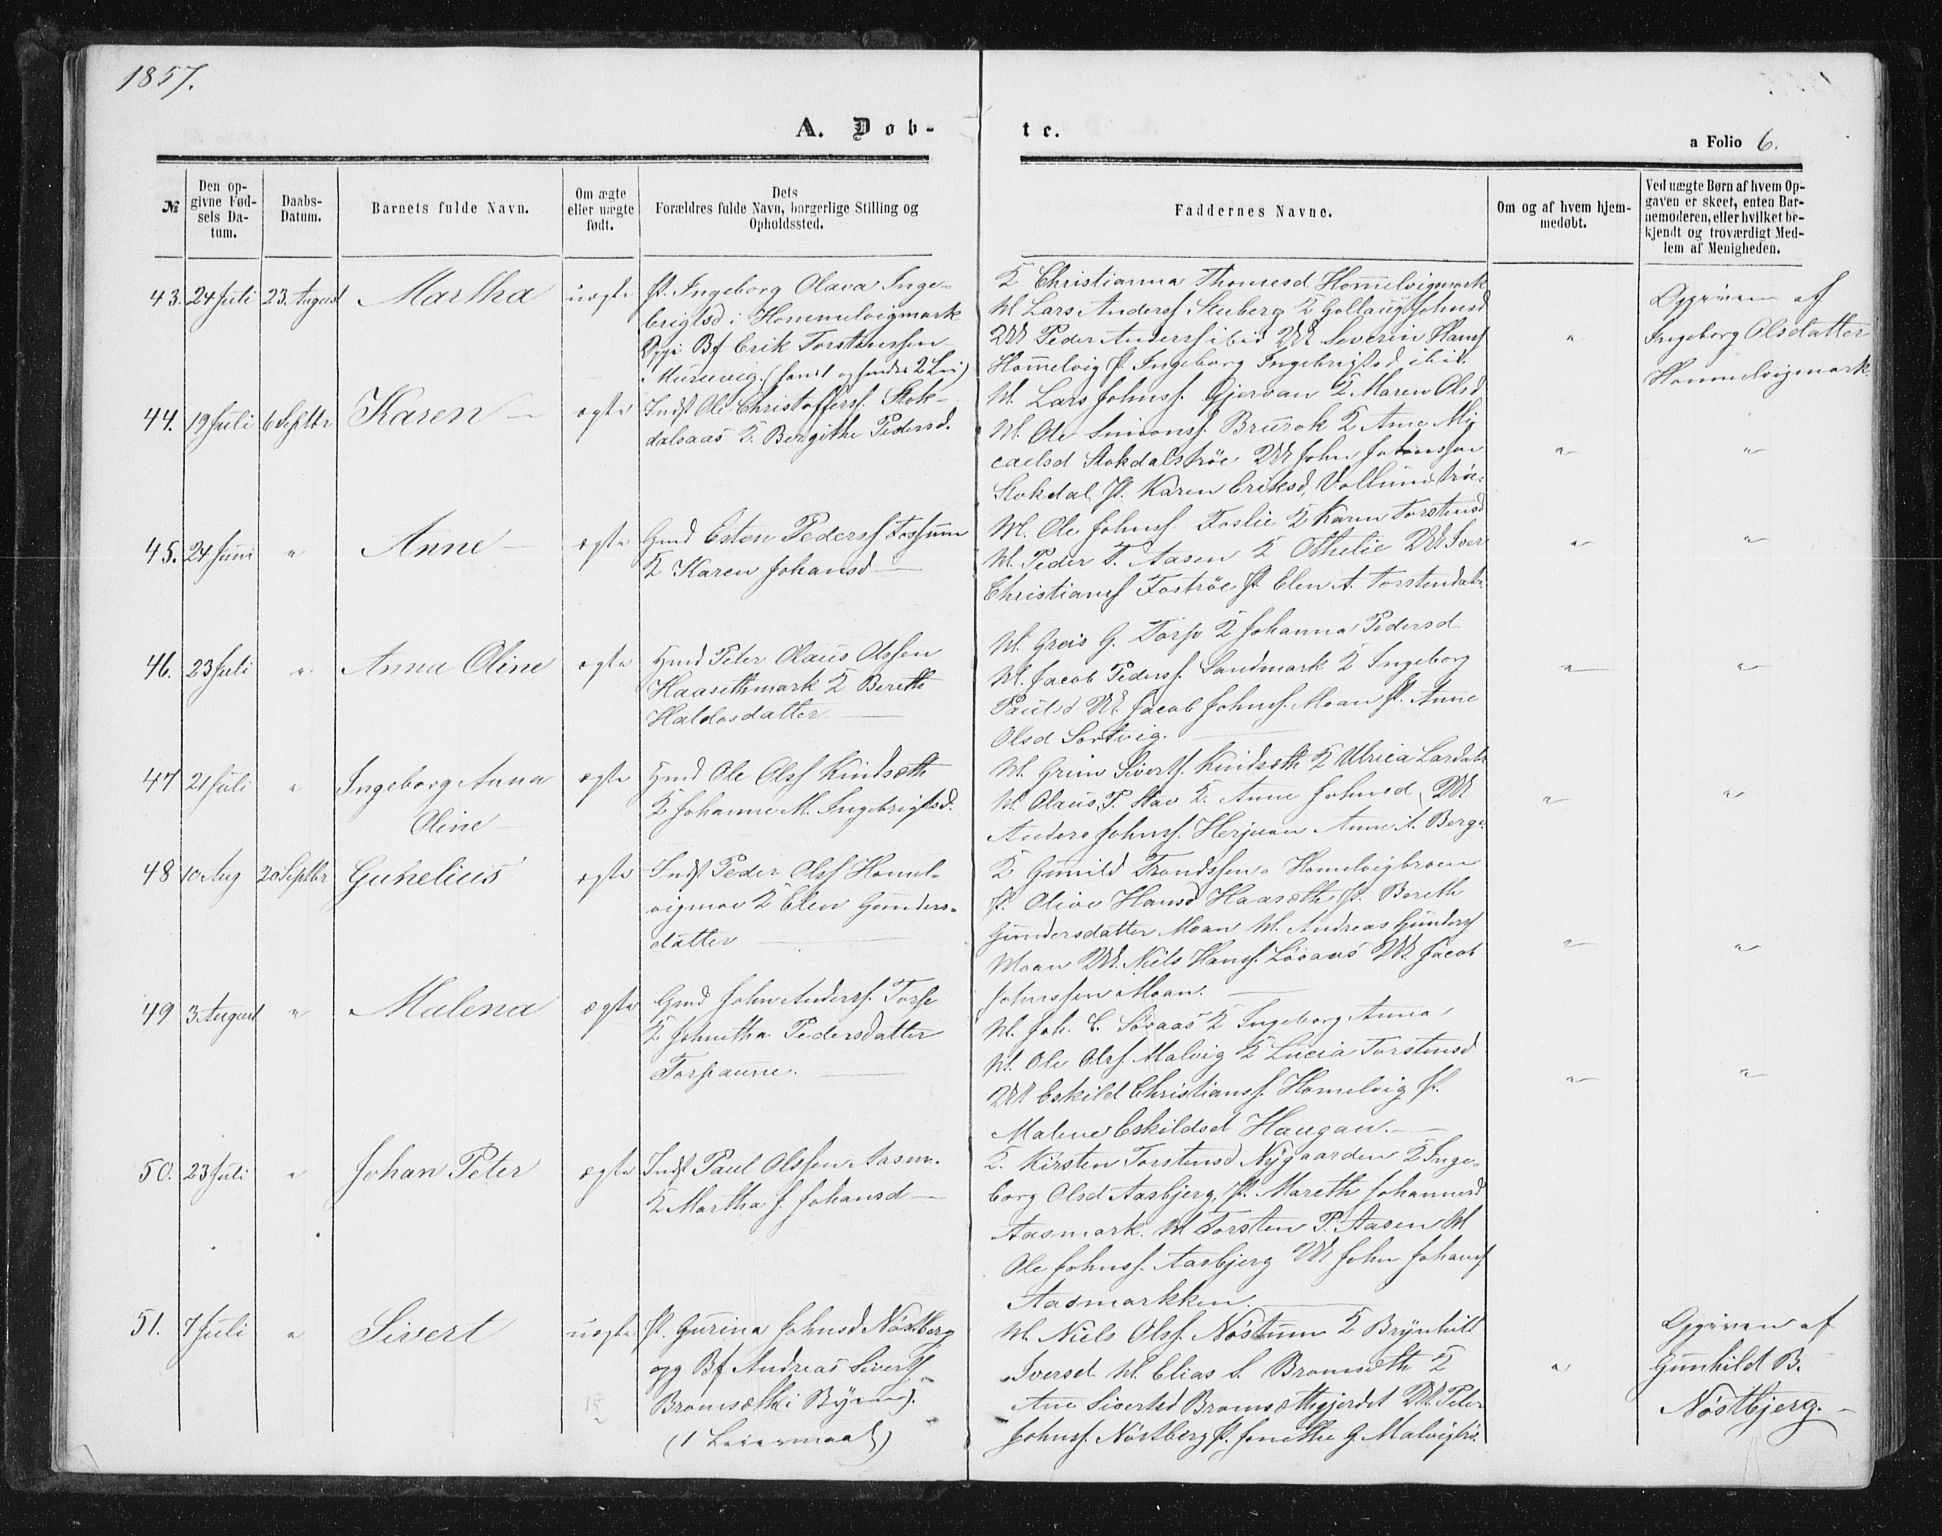 1857.
A. Døb-
te.
a Folio 6.
№
Den op-
givne Fød-
sels Da-
tum.
Daabs-
Datum.
Barnets fulde Navn.
Om ægte
eller uægte
født.
Dets
Forældres fulde Navn, borgerlige Stilling og
Opholdssted.
Faddernes Navne.
Om og af hvem hjem-
medøbt.
Ved uægte Børn af hvem Op-
gaven er skeet, enten Bar-
nemoderen, eller hvilket be-
kjendt og troværdigt Med-
lem af Menigheden.
43. 24 Juli 23. August Martha uægte
P. Ingeborg Olava Inge-
brigtsd i Hommelvigmark
Bf Erik Torstenssen
K Christianna Thomesd Hom̄elvigmark
M Lars Anderss Stuberg K Gollaug Johnsd
UM Peder Anderss ibid UM Severin Hanss
Hom̄elvig P. Ingeborg Ingebrigtsd ibid.
"
Opgiven af
Ingeborg Olsdatter
Hommelvigmark
44. 19 Juli 6 Septbr Karen – ægte
Indst Ole Christofferss. Stok-
dalsaas K. Bergithe Pedersd.
M. Lars Johnss. Gjervan K Maren Olsd
M. Ole Simonss. Brurok K Ane Mi-
caelsd Stokdalstrøe UM John Johnssen
Stokdal P. Karen Eriksd,
" "
45. 24 Juni " Anne – ægte
Gmd Esten Pederss Fossum
K Karen Johansd —
M. Ole Johnss. Foslie K Karen Torstensd
M. Peder T. Aasen K Othelie UM Iver
Christianss Fostrøe P. Elen A. Torstendatr
" "
46. 23 Juli " Anna Oline ægte
Hmd Peter Olaus Olssen
Haasethmark K Bereth
Haldosdatter —
M. Greis G. Torp K Johanna Pedersd
M. Jacob Pederss. Sandmark K Ingeborg
Paulsd UM Jacob Johnss. Moan P. Anne
Olsd Sortvig. —
" "
47 21 Juli " Ingeborg Anna
Oline –
ægte
Hmd Ole Olss Kindseth
K Johanne M. Ingebrigtsd.
M. Grim Siverts. Kindsæth K Ulrica Larsdatr
M. Olaus P. Stav K. Anne Johnsd, UM
Anders Johnss. Herjuan Anne A. Berge
" "
48 10 Aug 20 Septbr Gunelius ægte
Indst Peder Olss Hom̄el-
vigmoe K Elen Gunders-
datter —
K Gunild Trondssen Hom̄elvigbroen
P. Olive Hansd Haasæth P. Bereth
Gundersdatter Moan M. Andreas Gunderss
Moan UM. Niels Hanss. Løvaas UM Jacob
Johnssen Moan. —
" "
49 3 August " Malena ægte
Gmd John Anderss. Torp
K Johnetha Pedersdatter
Torpaune. —
M. Joh. E. Løvaas K Ingeborg Anna
M. Ole Olss. Malvig K Lucia Torstensd
UM Eskild Christianss. Hom̄elvig P.
Malene Eskildsd Haugan. —
" "
50. 23 Juli " Johan Peter ægte
Indst Paul Olssen Aasm.
K Martha J. Johansd —
K. Kirsten Torstensd Nygaarden K Inge-
borg Olsd Aasbjerg, P. Mareth Johannesd
Aasmark. M Torsten P. Aasen M
Ole Johnss. Aasbjerg UM John Johanss
Aasmarkken.
51. 7 Juli " Sivert uægte
P. Gurina Johnsd Nøstberg
opg Bf Andreas Siverts
Bromsæth i
(1 Leiermaal)
M. Niels Olss. Nøstum K Brynhild
Iversd M. Elias S. Bromsæth K
Ane Sivertsd Bromsæthgjerdet UM. Peter
Johnss. Nøstberg P. Jonethe G. Malvigtrø.
"
Opgiven af
Gunhild B.
Nøstbjerg. –